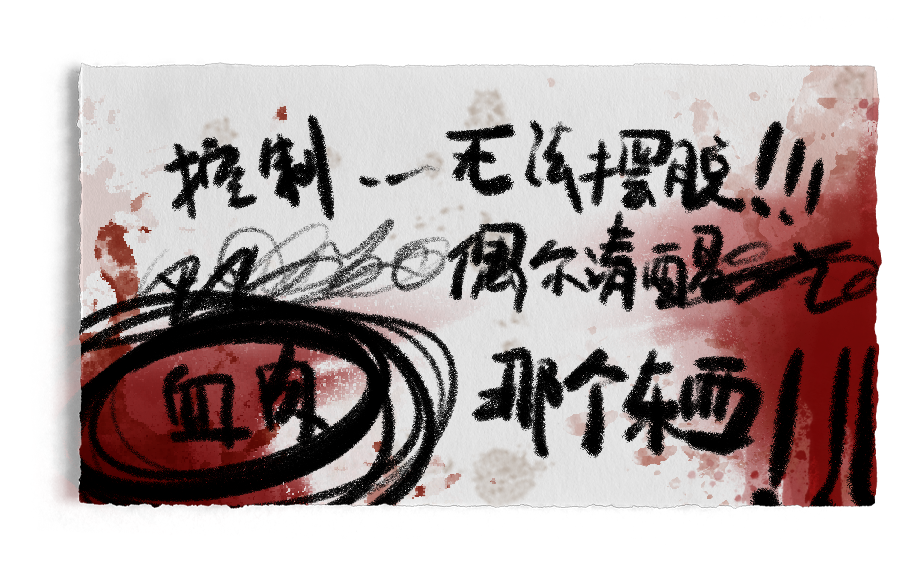 控制……无法摆脱!!!
偶尔清醒
血肉 那个东西!!!